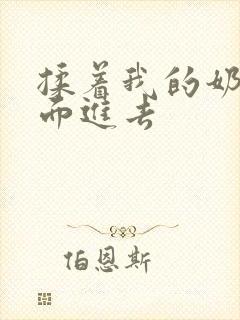 揉着我的奶
而进去
伯恩斯